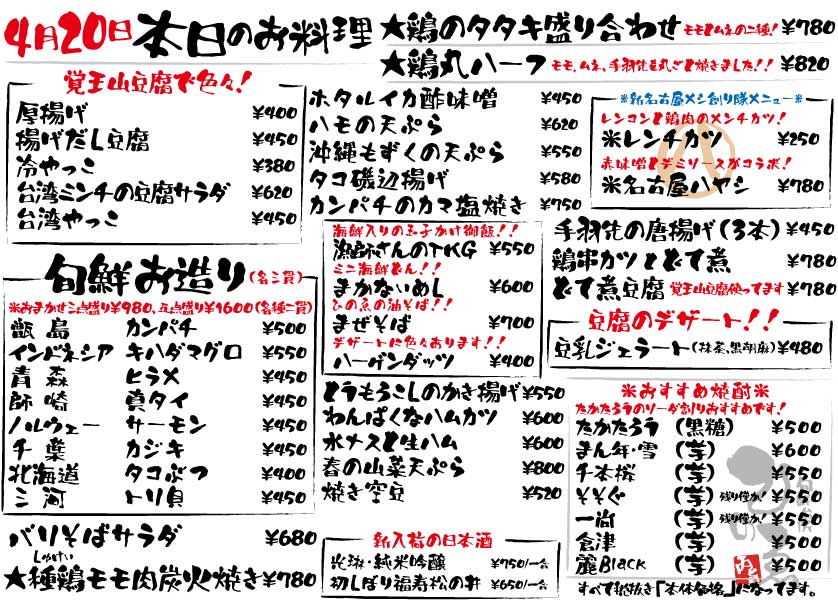 4月20日 本日のお料理
★鶏のタタキ盛り合わせ モモとムネの二種! ¥780
★鶏丸ハーフ モモ、ムネ、手羽先を丸ごと焼きました!! ¥820
覚王山豆腐で色々!
厚揚げ ¥400
揚げだし豆腐 ¥450
冷やっこ ¥380
台湾ミンチの豆腐サラダ ¥620
台湾やっこ ¥450
ホタルイカ酢味噌 ¥450
ハモの天ぷら ¥620
沖縄もずくの天ぷら ¥550
タコ磯辺揚げ ¥580
カンパチのカマ塩焼き ¥750
※新名古屋メシ創り隊メニュー※
レンコンと鶏肉のメンチカツ!
※レンチカツ ¥250
赤味噌とデミソースがコラボ!
※名古屋ハヤシ ¥780
旬鮮お造り (各二貫)
※おまかせ三点盛り¥980、五点盛り¥1600(各種二貫)
甑島 カンパチ ¥500
インドネシア キハダマグロ ¥550
青森 ヒラメ ¥450
師崎 真タイ ¥450
ノルウェー サーモン ¥450
千葉 カジキ ¥450
北海道 タコぶつ ¥400
三河 トリ貝 ¥450
バリそばサラダ ¥680
しゅけい
★種鶏モモ肉炭火焼き ¥780
海鮮入りの玉子かけ御飯!!
漁師さんのTKG ¥550
ミニ海鮮どん!!
まかないめし ¥600
ひの鳥の油そば!!
まぜそば ¥700
デザートに色々あります!!
ハーゲンダッツ ¥400
とうもろこしのかき揚げ ¥550
わんぱくなハムカツ ¥600
水ナスと生ハム ¥600
春の山菜天ぷら ¥800
焼き空豆 ¥520
新入荷の日本酒
光琳・純米吟醸 ¥750/一合
初しぼり福寿松の井 ¥650/一合
手羽先の唐揚げ(3本) ¥450
鶏串カツとどて煮 ¥780
どて煮豆腐 覚王山豆腐使ってます ¥780
豆腐のデザート!!
豆乳ジェラート(抹茶、黒胡麻) ¥480
※おすすめ焼酎※
たかたろうのソーダ割りおすすめです!
たかたろう (黒糖) ¥500
まん年・雪 (芋) ¥600
千本桜 (芋) ¥550
そそぐ (芋) 残り僅か! ¥550
一尚 (芋) 残り僅か! ¥550
倉津 (芋) ¥500
麗Black (芋) ¥500
すべて税抜き「本体価格」になってます。